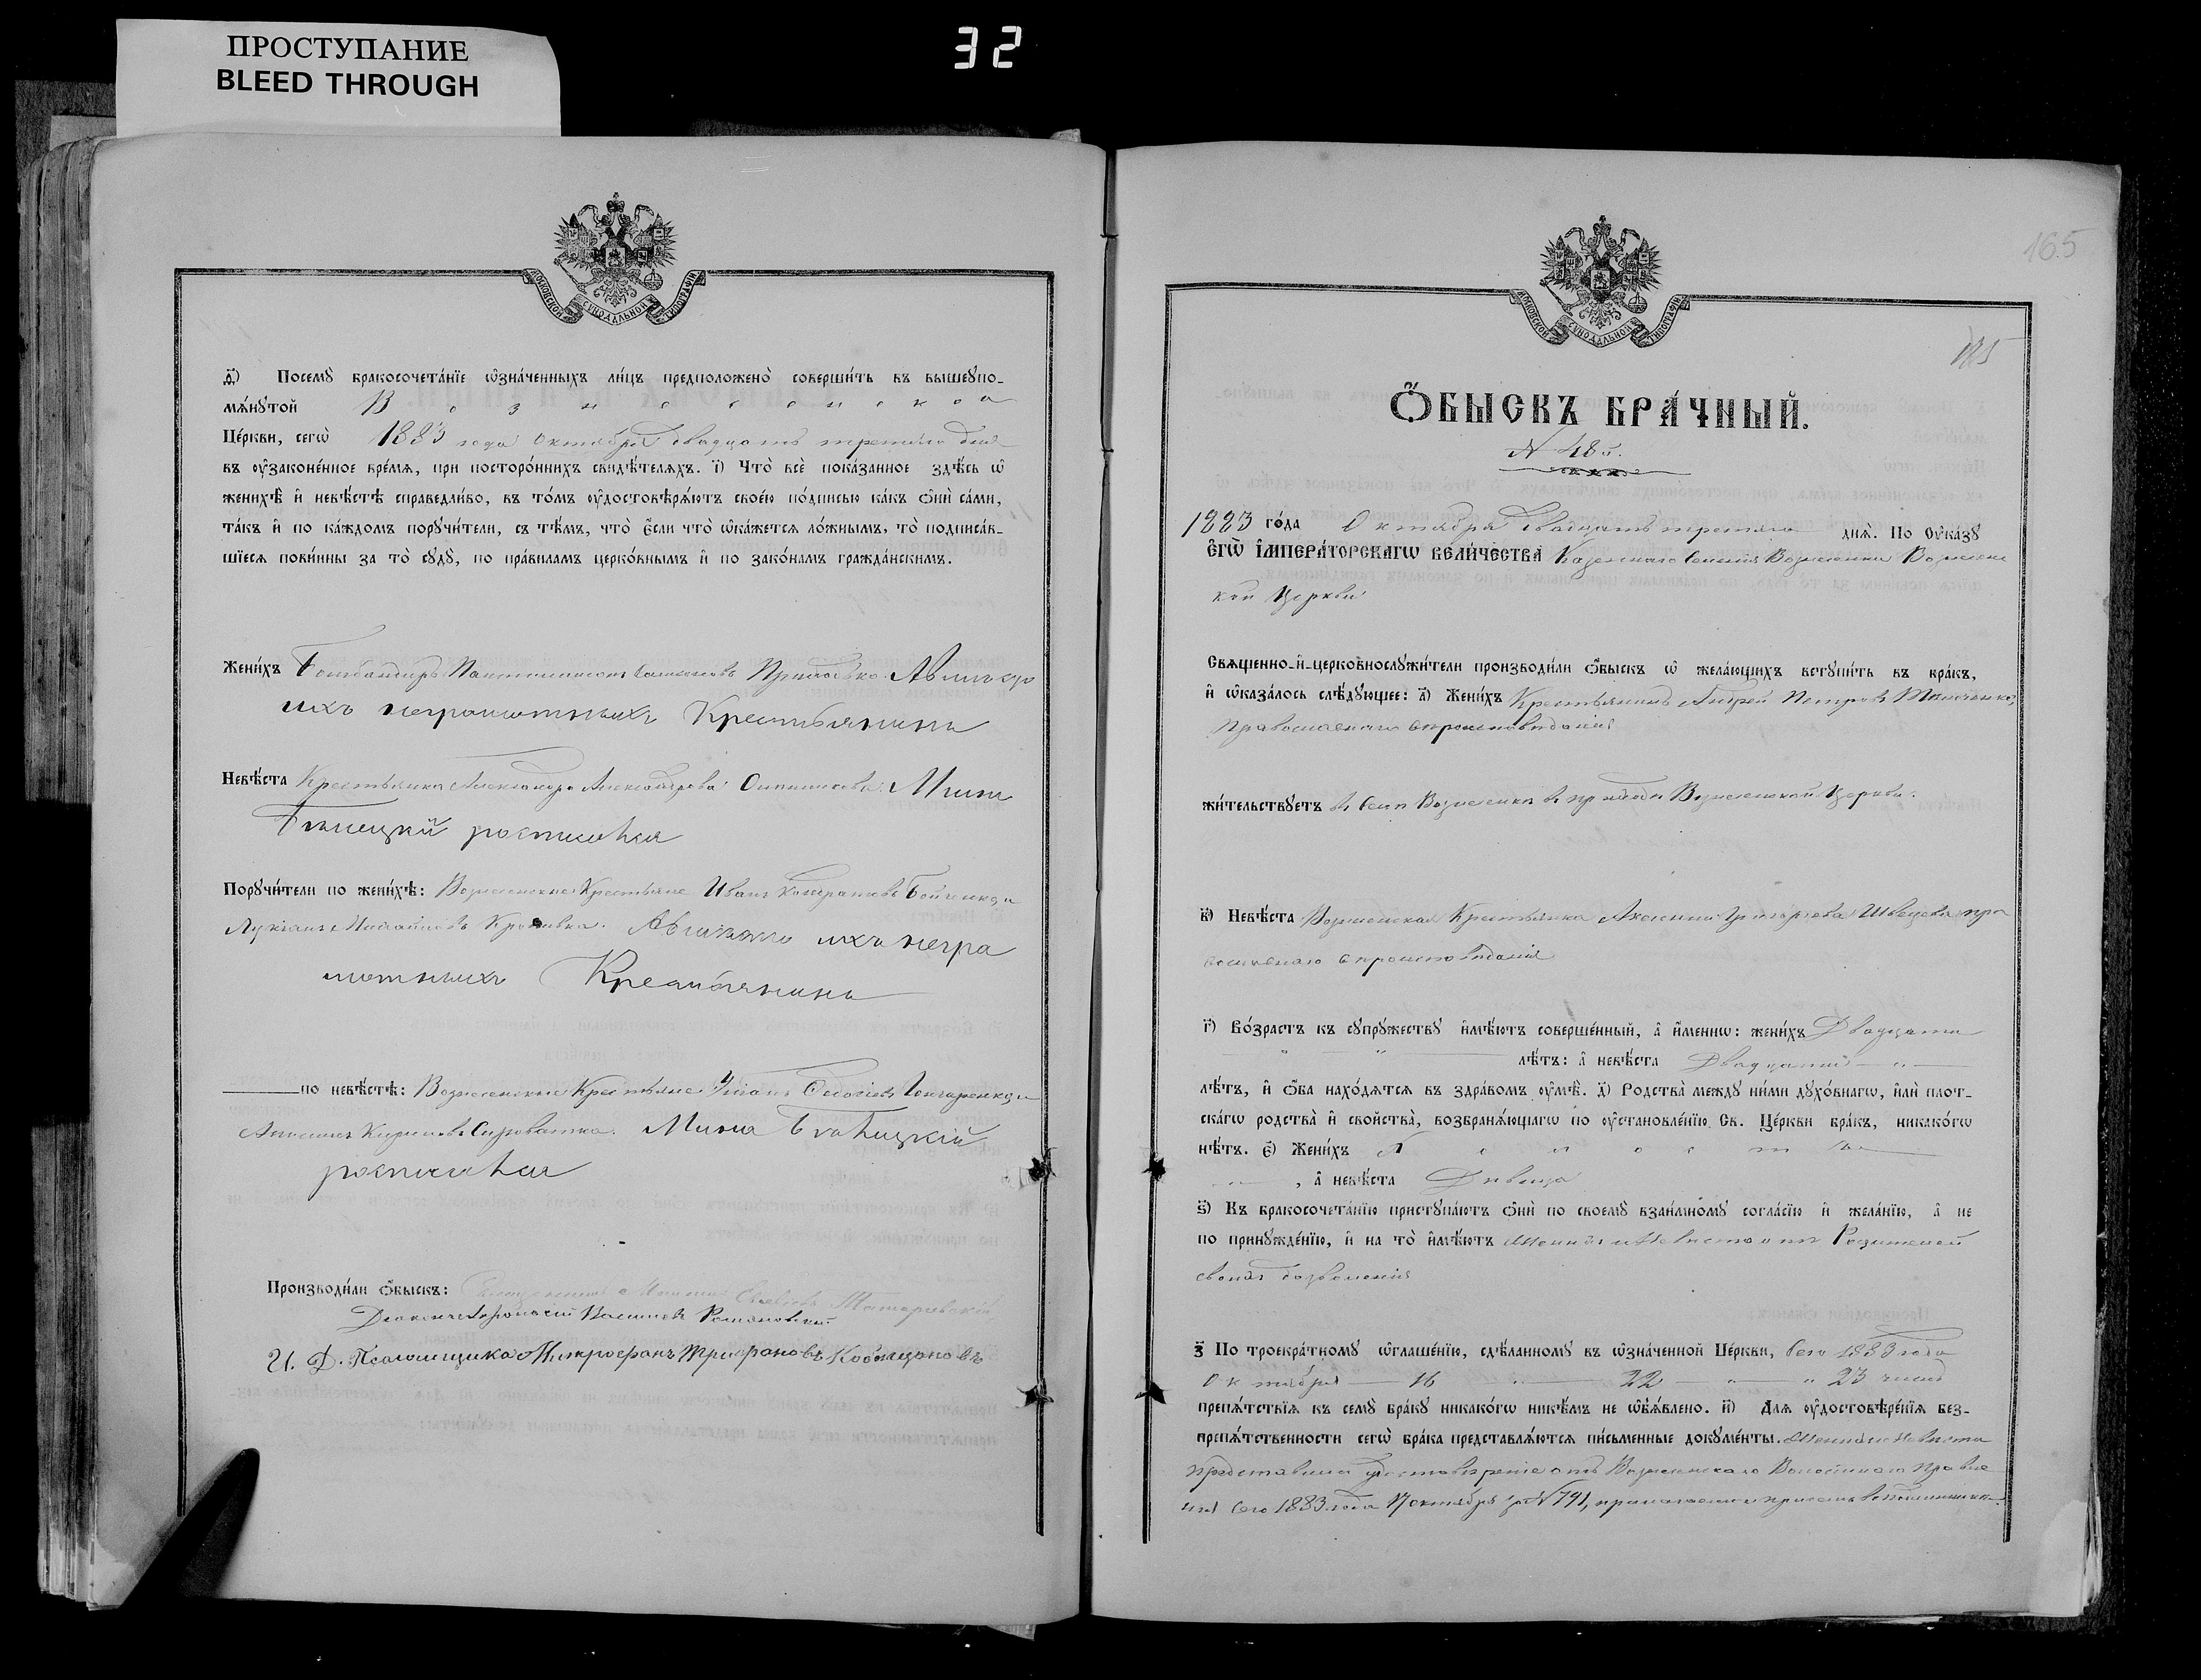 ПРОСТУПАНИЕ
BLEED THROUGH
32
МОСКОВСКОЙ СѴНОДАЛЬНОЙ ТИПОГРАФІИ
д҃і) Посемꙋ бракосочета́нїе ѡ҆зна́ченныхъ ли́цъ предположено̀ соверши́ть въ вышеꙋпо-
мѧ́нꙋтой Вознесенской
Це́ркви, сегѡ̀ 1883 года Октября двадцать третьяго дня
въ ᲂу҆законе́нное вре́мѧ, при посторо́ннихъ свидѣ́телѧхъ. і҃) Что̀ всѐ пока́занное здѣ́сь ѡ҆
женихѣ̀ и҆ невѣ́стѣ справедли́во, въ то́мъ ᲂу҆достовѣрѧ́ютъ свое́ю по́дписью ка́къ ѻ҆нѝ са́ми,
та́къ и҆ по ка́ждомъ порꙋчи́тели, съ тѣ́мъ, что̀ є҆́сли что̀ ѡ҆ка́жетсѧ ло́жнымъ, то̀ подписа́в-
шїесѧ пови́нны за то̀ сꙋдꙋ̀, по пра́виламъ церко́внымъ и҆ по зако́намъ гражда́нскимъ.
Жени́хъ Бомбандиръ
ихъ неграмотныхъ Крестьянинъ
Невѣ́ста Крестьянка Александра Александрова Мина
росписався
Порꙋчи́тели по женихѣ̀: Вознесенские Крестьяне Иванъ Кондратовъ Бойченко и
ихъ негра
мотныхъ Крестьянинъ
по невѣ́стѣ: Вознесенские Крестьяне Гончаренко и
Сыроватка. Мина
росписався
Производи́ли ѻ҆́быскъ: Священникъ
Діаконъ Афонасий Романовский
И. Д. Псаломщика Митрофанъ Трифоновъ
165
185
Ѻ҆́БЫСКЪ БРА́ЧНЫЙ.
N 48й.
1883 го́да Октября двадцать третьяго днѧ̀. По Оу҆ка́зꙋ
Є҆гѡ̀ И҆мпера́торскагѡ Вели́чества Казенного Селения Вознесенки Вознесенс
кой Церкви
Свѧще́нно-и҆-церковнослꙋжи́тели производи́ли ѻ҆́быскъ ѡ҆ жела́ющихъ встꙋпи́ть въ бра́къ,
и҆ ѡ҆каза́лось слѣ́дꙋющее: а҃) Жени́хъ Крестьянинъ Андрей Петровъ
Православнаго вероисповѣданія
жи́тельствꙋетъ в Селѣ Вознесенкѣ в приходѣ Вознесенской Церкви.
в҃) Невѣ́ста Вознесенская Крестьянка Григорьева Швецова пра
вославнаго вѣроисповѣданія
г҃) Во́зрастъ къ сꙋпрꙋ́жествꙋ и҆мѣ́ютъ соверше́нный, а҆ и҆́меннѡ: жени́хъ Двадцати
лѣ́тъ: а҆ невѣ́ста Двадцати
лѣ́тъ, и҆ ѻ҆́ба нахо́дѧтсѧ въ здра́вомъ ᲂу҆мѣ̀. д҃) Родства̀ междꙋ ни́ми дꙋхо́внагѡ, и҆лѝ пло́т-
скагѡ родства̀ и҆ свойства̀, возбранѧ́ющагѡ по ᲂу҆становле́нїю Св. Це́ркви бра́къ, никако́гѡ
нѣ́тъ. є҃) Жени́хъ Холостъ
, а҆ невѣ́ста Дѣвица
ѕ҃) Къ бракосочета́нїю пристꙋпа́ютъ ѻ҆нѝ по своемꙋ̀ взаи́мномꙋ согла́сїю и҆ жела́нїю, а҆ не
по принꙋжде́нїю, и҆ на то̀ и҆мѣ́ютъ Женихъ и Невѣста отъ Родителей
своихъ дозволения
з҃ По троекра́тномꙋ ѡ҆глаше́нїю, сдѣ́ланномꙋ въ ѡ҆зна́ченной Це́ркви, Сего 1883 года
Октября — 16 — 22 — 23 чиселъ
препѧ́тствїѧ къ семꙋ̀ бра́кꙋ никако́гѡ никѣ́мъ не ѡ҆б̾ѧ́влено. и҃) Длѧ ᲂу҆достовѣре́нїѧ без-
препѧ́тственности сегѡ̀ бра́ка представлѧ́ютсѧ пи́сьменные докꙋме́нты. Женихъ и Невѣста
представили удостоверение отъ Вознесенского Волостного Правле
ния Сего 1883 года 17 октября за N 791,